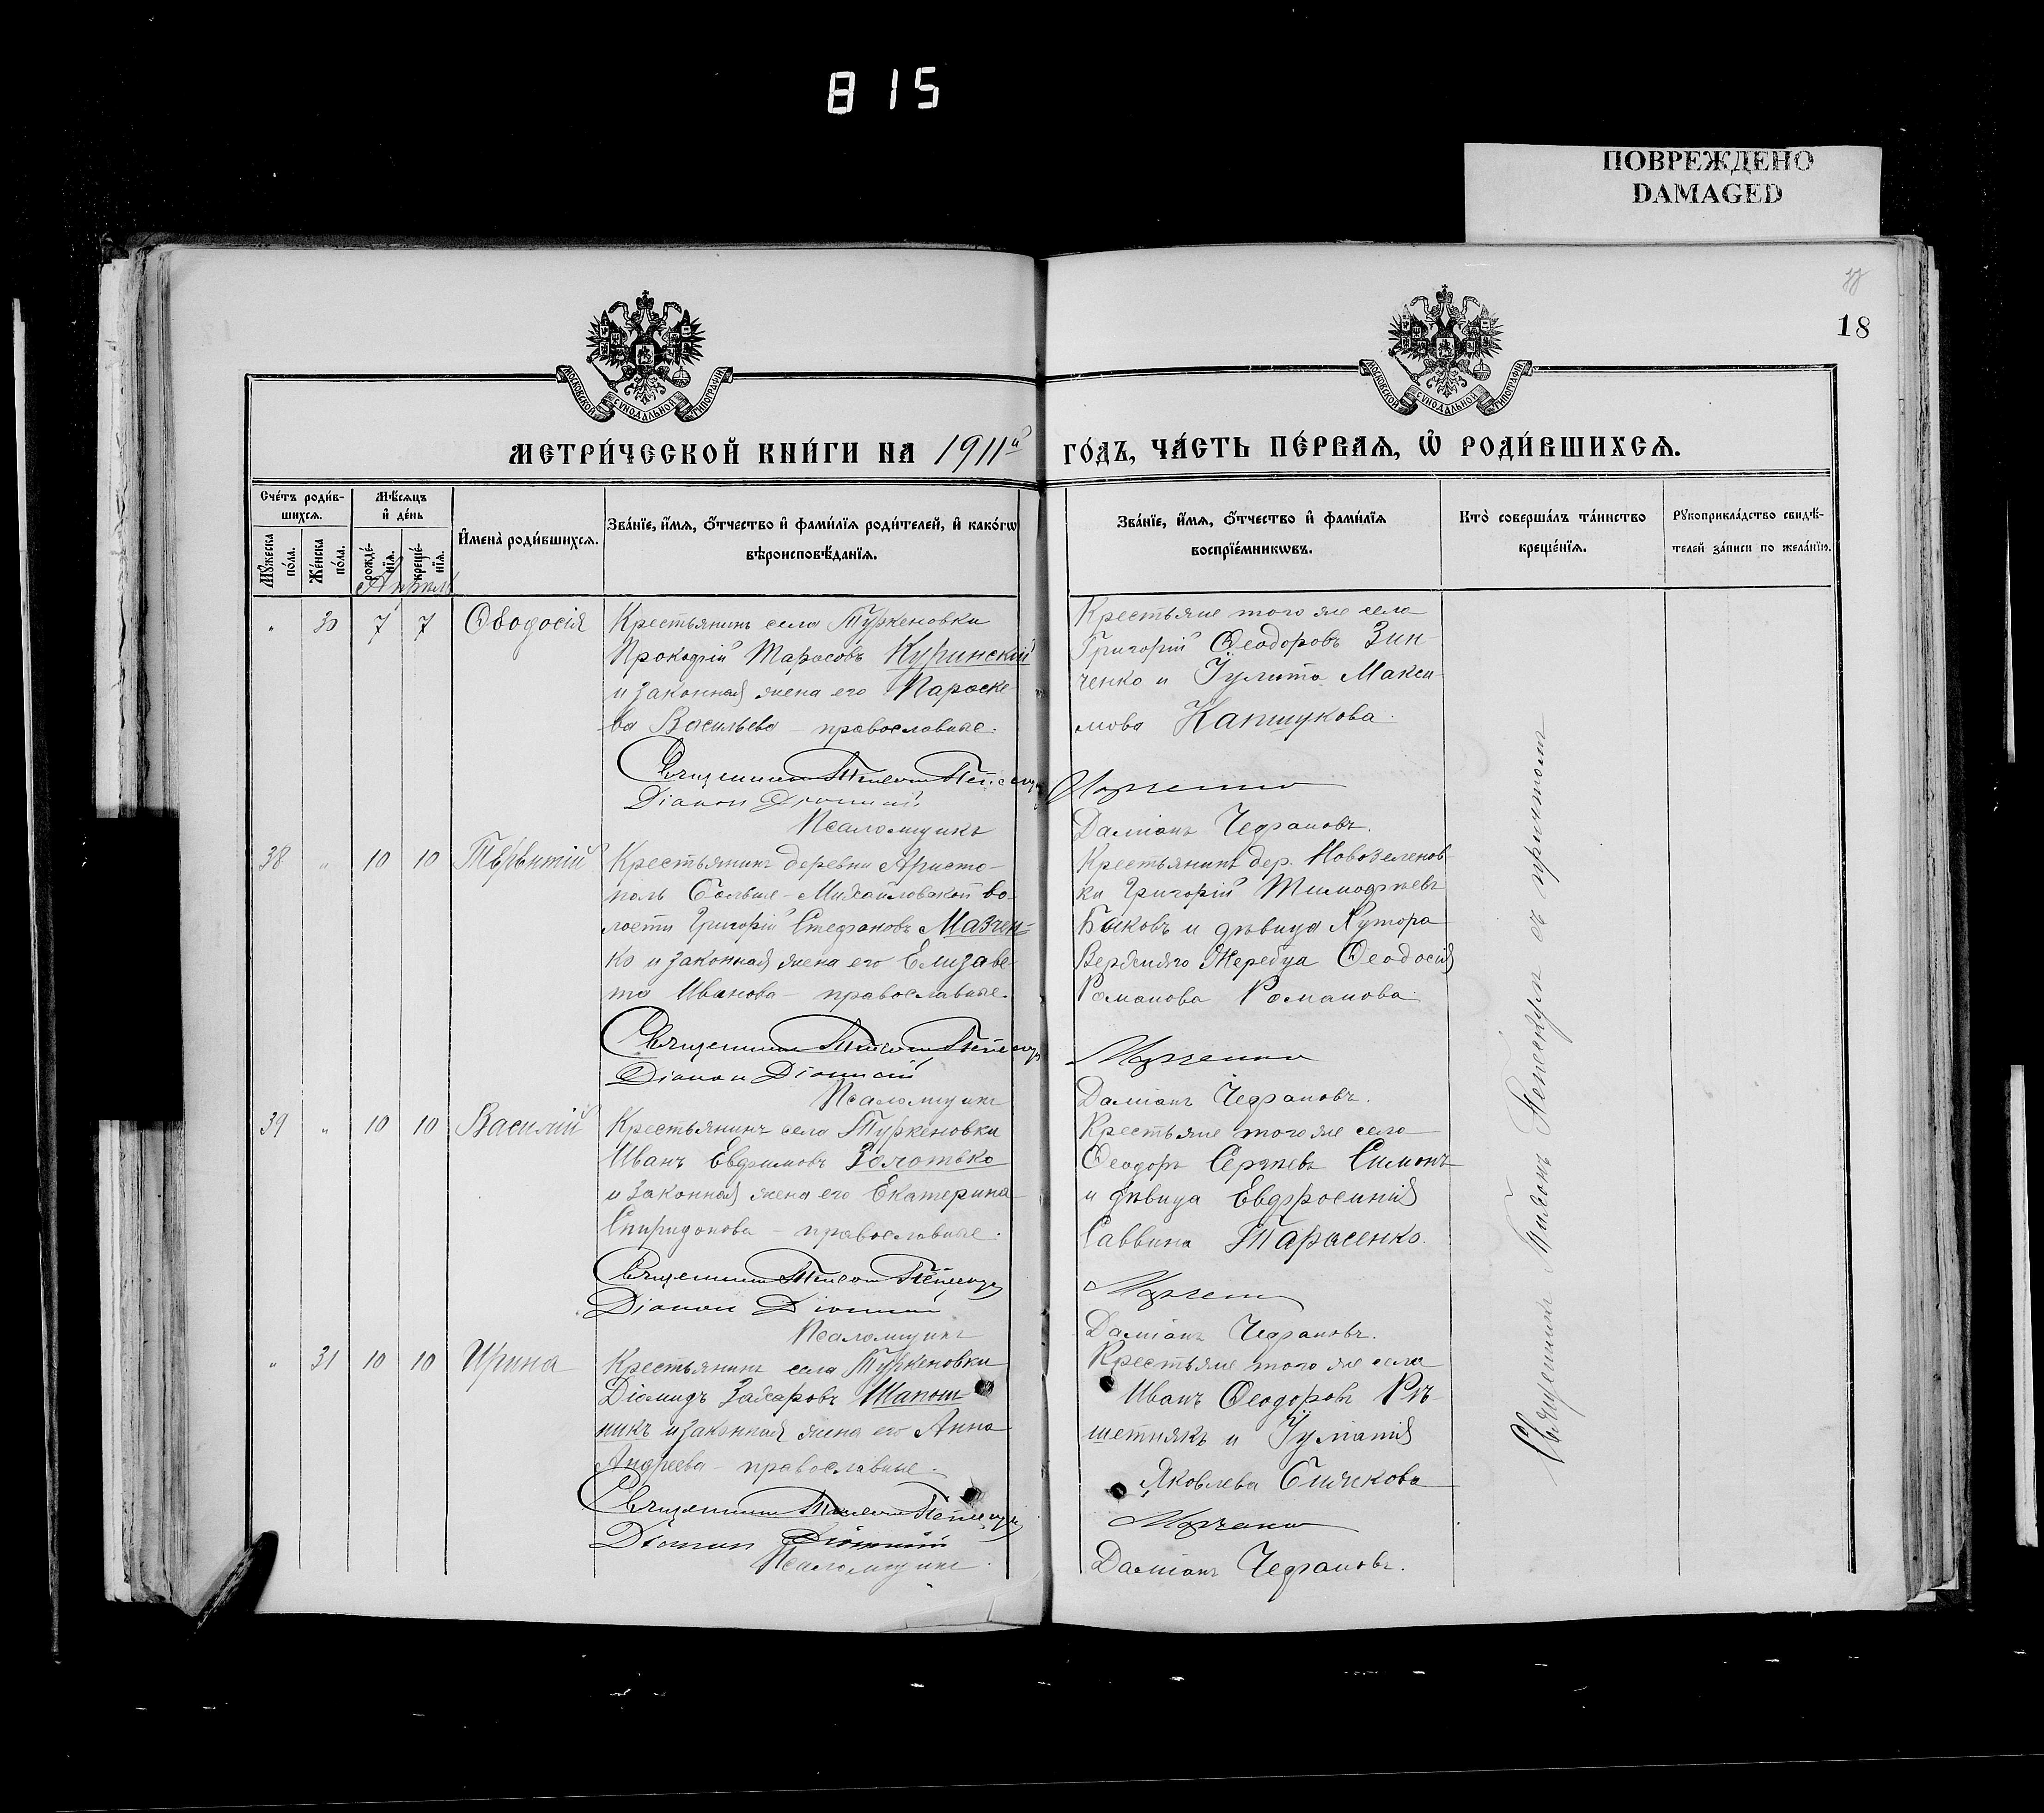 815
ПОВРЕЖДЕНО
DAMAGED
18
МОСКОВСКОЙ СѴНОДАЛЬНОЙ ТИПОГРАФІИ
МОСКОВСКОЙ СѴНОДАЛЬНОЙ ТИПОГРАФІИ
МЕТРИ́ЧЕСКОЙ КНИ́ГИ НА 1911й ГО́ДЪ, ЧА́СТЬ ПЕ́РВАЯ, Ѡ РОДИ́ВШИХСЯ.
Сче́тъ роди́в-
шихся.
Мꙋ́жеска по́ла.
Же́нска по́ла.
Мѣ́сяцъ и де́нь
рожде́-
нїя.
креще́-
нїя.
И҆мена̀ роди́вшихся.
Зва́нїе, и҆́мя, ѻ҆́тчество и҆ фами́лїя роди́телей, и҆ како́гѡ
вѣроисповѣ́данїя.
Зва́нїе, и҆́мя, ѻ҆́тчество и҆ фами́лїя
воспрїе́мникѡвъ.
Кто̀ соверша́лъ та́инство
креще́нїя.
Рꙋкоприкла́дство свидѣ́-
телей за́писи по жела́нїю.
Апрѣль
" 30 7 7 Ѳеодосія
Крестьянинъ села Туркеновки
Прокофій Тарасовъ Куринскій
и законная жена его Параске-
ва Васильева – православные.
Священникъ
Діаконъ
Псаломщикъ
Крестьяне того же села
Григорій Ѳеодоровъ Зин-
ченко и Іулита Макси-
мова Капшукова.
Даміанъ Чефрановъ.
38 " 10 10 Терентій
Крестьянинъ деревни Аристо-
поль Больше-Михайловской во-
лости Григорій Стефановъ Мазчен-
ко и законная жена его Елизаве-
та Иванова – православные.
Священникъ
Діаконъ
Псаломщикъ
Крестьянинъ дер. Новозеленов-
ки Григорій Тимофѣевъ
Баковъ и дѣвица Хутора
Жеребца Ѳеодосія
Романова Романова.
Даміанъ Чефрановъ.
39 " 10 10 Василій
Крестьянинъ села Туркеновки
Иванъ Евфимовъ Золотько
и законная жена его Екатерина
Спиридонова – православные.
Священникъ
Діаконъ
Псаломщикъ
Крестьяне того же села
Ѳеодоръ Сергѣевъ Симонъ
и дѣвица Евфросинія
Саввина Тарасенко.
Даміанъ Чефрановъ.
" 31 10 10 Ирина
Крестьянинъ села Туркеновки
Діомидъ Захаровъ Шапош-
никъ и законная жена его Анна
Андреева – православные.
Священникъ
Діаконъ
Псаломщикъ
Крестьяне того же села
Иванъ Ѳеодоровъ Рѣ-
шетнякъ и Іуліанія
Яковлева Сичкова
Даміанъ Чефрановъ.
Священникъ съ причтомъ